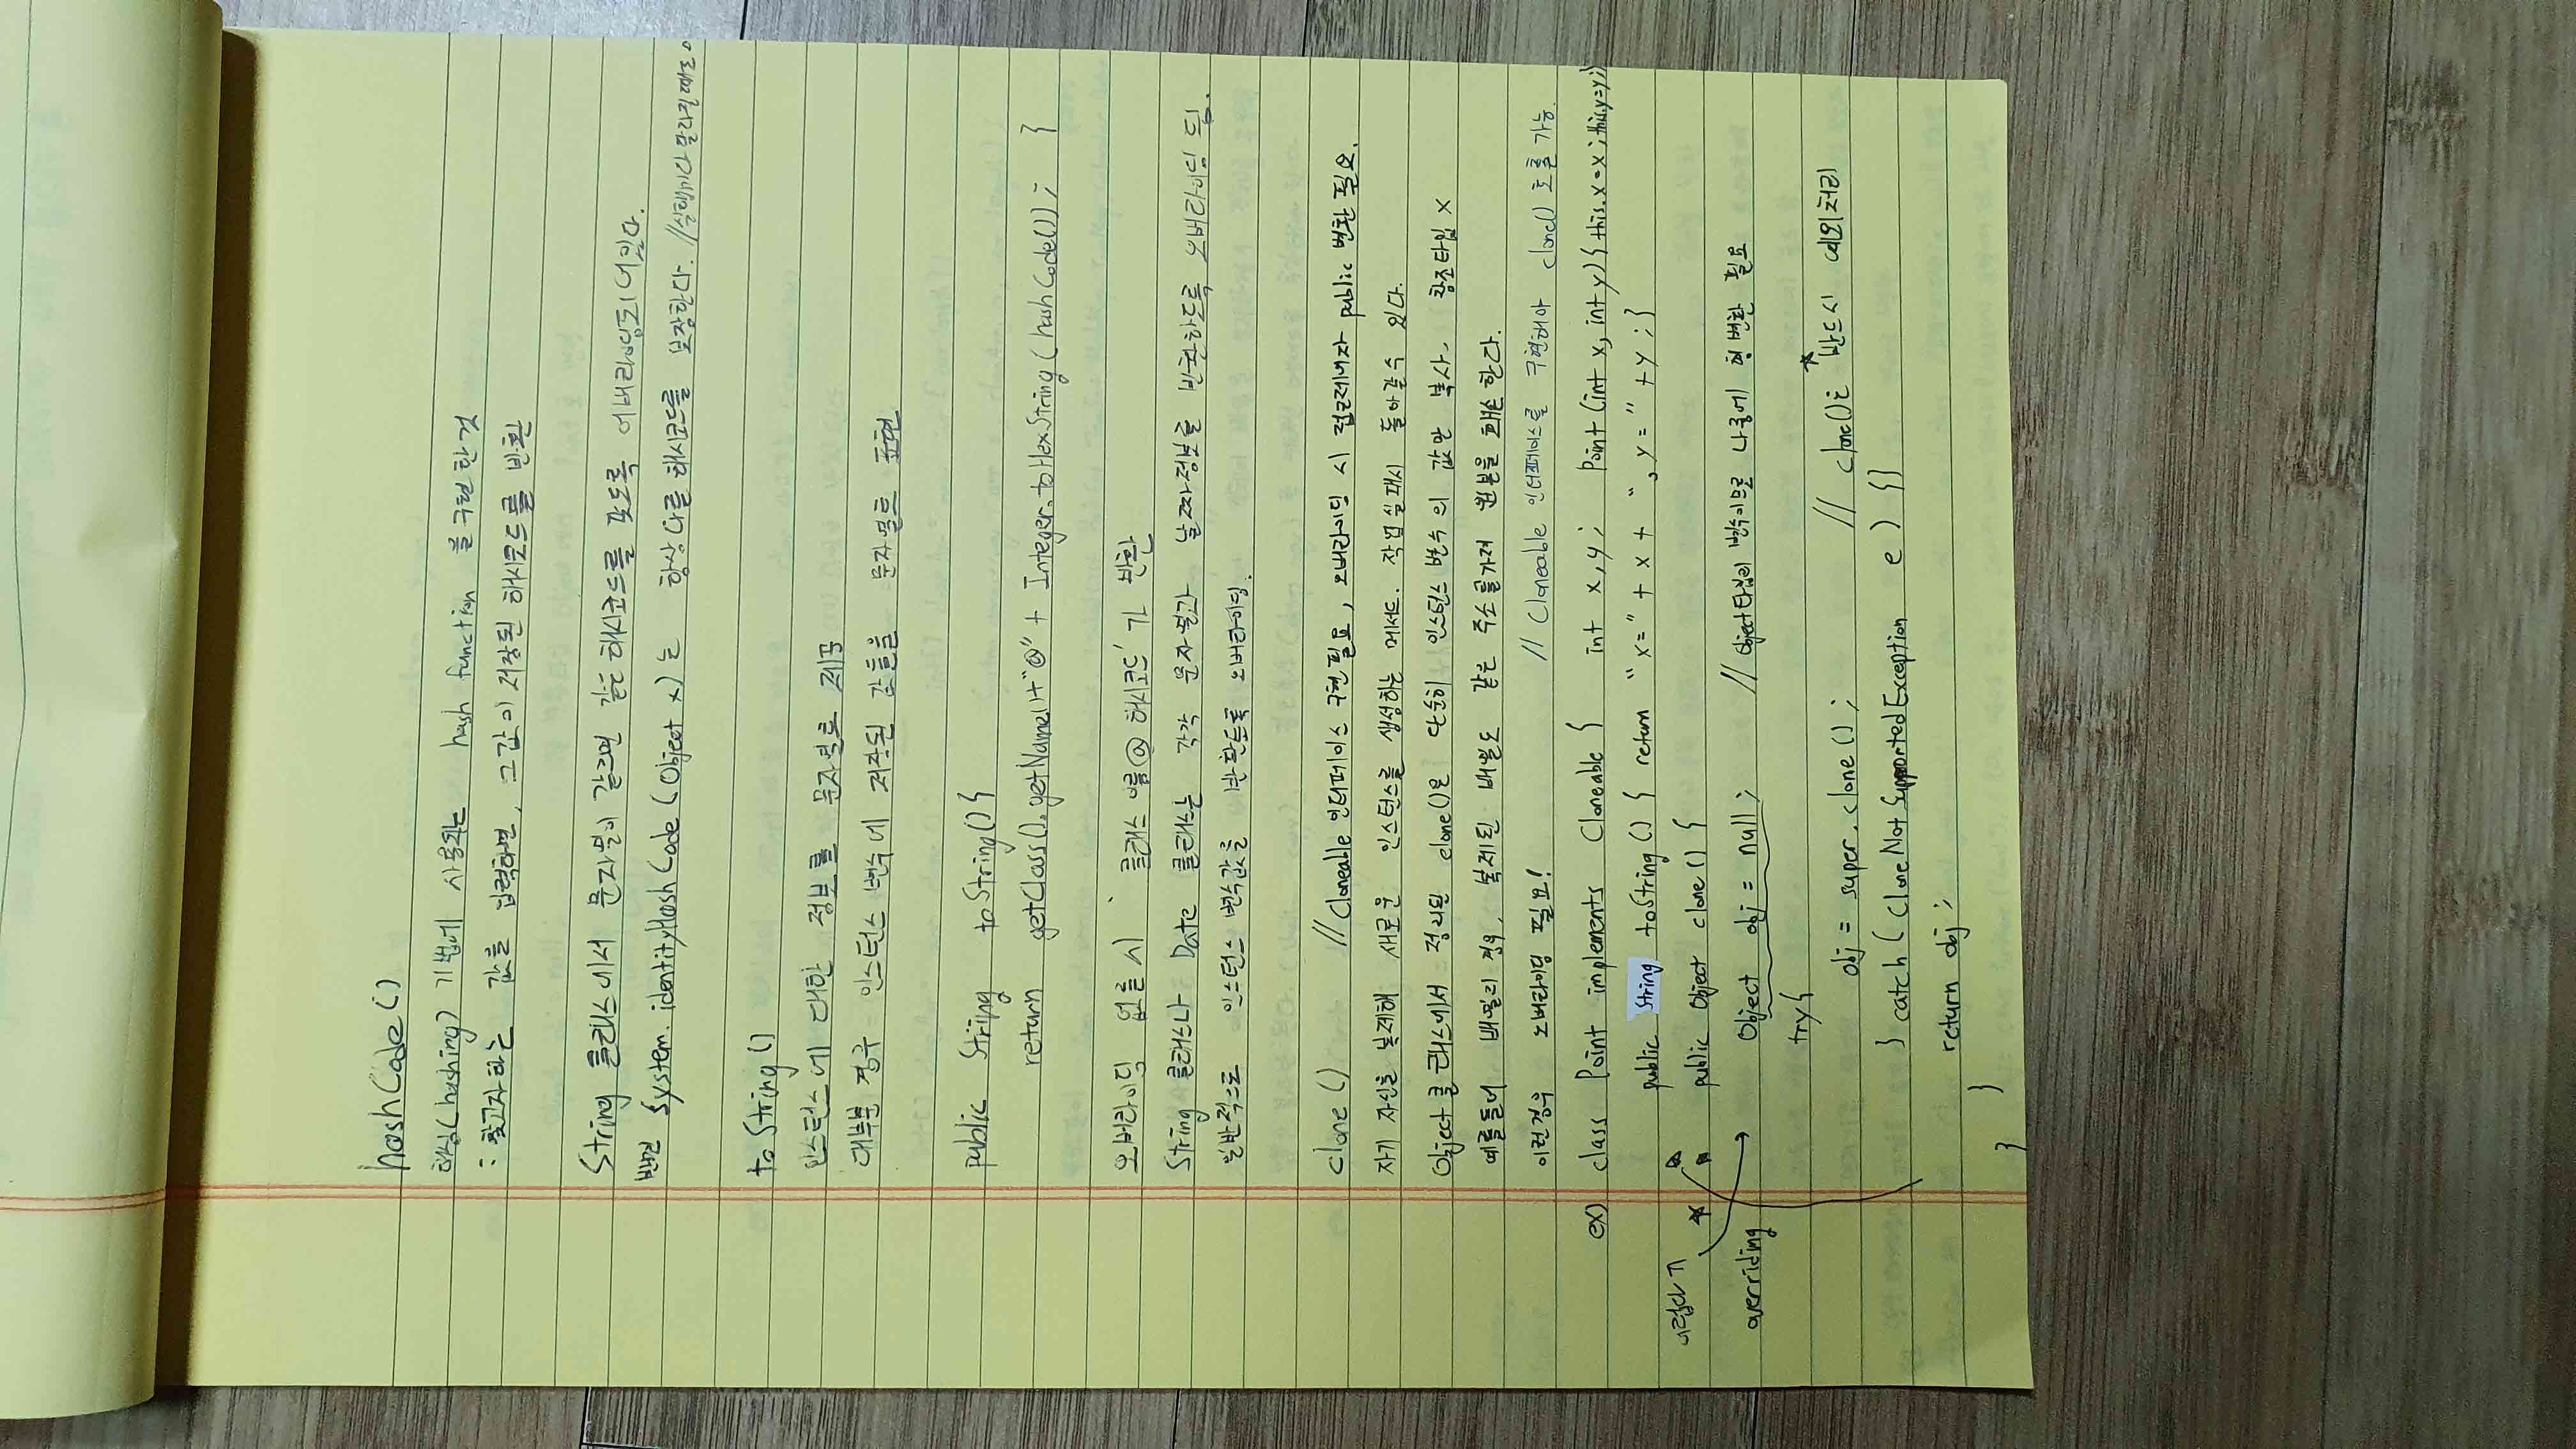 hashCode()
해싱(hashing) 기법에 사용되는 hash function 을 구현한것
: 찾고자하는 값을 입력하면, 그값이 저장된 해시코드를 반환
String 클래스에서 문자열이 같으면 같은 해시코드를 갖도록 오버라이딩되어있다.
반면 System.identityHashCode(Object x)는 항상 다른 해시코드를 보장한다. //실행마다 달라질때도
toString()
인스턴스에 대한 정보를 문자열로 제공
대부분 경우 인스턴스 변수에 저장된 값들을 문자열로 표현
public String toString(){
return getClass().getName()+"@" + Integer.toHexString(hashCode()); }
오버라이딩 없을 시 '클래스 이름@해시코드'가 반환
String 클래스나 Date 클래스는 각각 문자열과 날짜정보를 반환하도록 오버라이딩 됨.
일반적으로 인스턴스 변수값을 반환토록 오버라이딩.
clone() // Cloneable 인터페이스 구현필요, 오버라이딩 시 접근제어자 public 변환 필요.
자기 자신을 복제해 새로운 인스턴스를 생성하는 메서드. 작업실패시 돌아갈수 있다.
Object 클래스에서 정의된 clone()은 단순히 인스턴스 변수의 값만 복사. 참조타입 x
예를들어 배열의 경우, 복제된 배열도 같은 주소를가져 원본을 훼손한다.
이런경우 오버라이딩 필요! // Cloneable 인터페이스를 구현해야 clone() 호출 가능.
ex) class Point implements Cloneable { int x,y; Point(int x, int y){this.x=x;this.y=y;}
public String toString() { return "x=" + x + ", y=" +y;}
어렵다ㅠ
★ public Object clone() {
overriding Object obj = null; // Object타입의 변수이므로 나중에 형변환 필요
try{
obj = super.clone(); // clone()는 ★반드시 예외처리
} catch(CloneNotSupportedException e) {}
return obj;
}
}